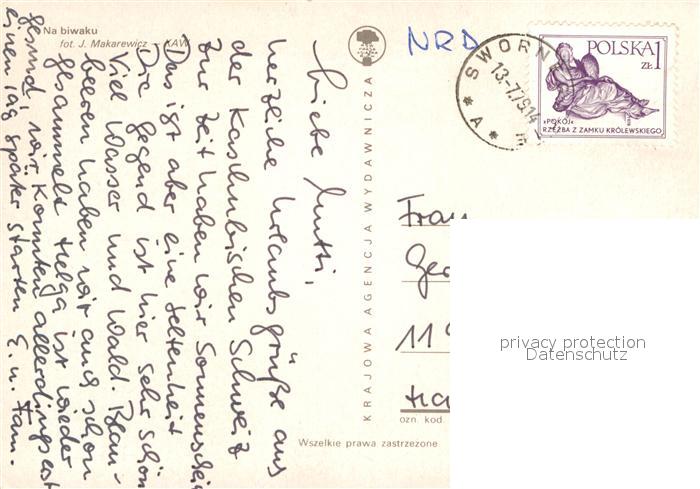 Na biwaku
fot. J. Makarewicz — KAW
Liebe Mutti,
herzliche Urlaubsgrüße aus
der Kaschubischen Schweiz
Zur Zeit haben wir Sonnenschein
Das ist aber eine Seltenheit
Die Gegend ist hier sehr schön
Viel Wasser und Wald. Blau-
beeren haben wir auch schon
gesammelt Helga ist wieder
gesund, wir konnten allerdings erst
einen Tag später starten E. u. Fam.
KRAJOWA AGENCJA WYDAWNICZA
NRD
SWORN
13.-7.79.14
* A *
POLSKA 1
ZŁ
»POKÓJ«
RZEŹBA Z ZAMKU KRÓLEWSKIEGO
Frau
Ger
119
ozn. kod.
Wszelkie prawa zastrzeżone
privacy protection
Datenschutz